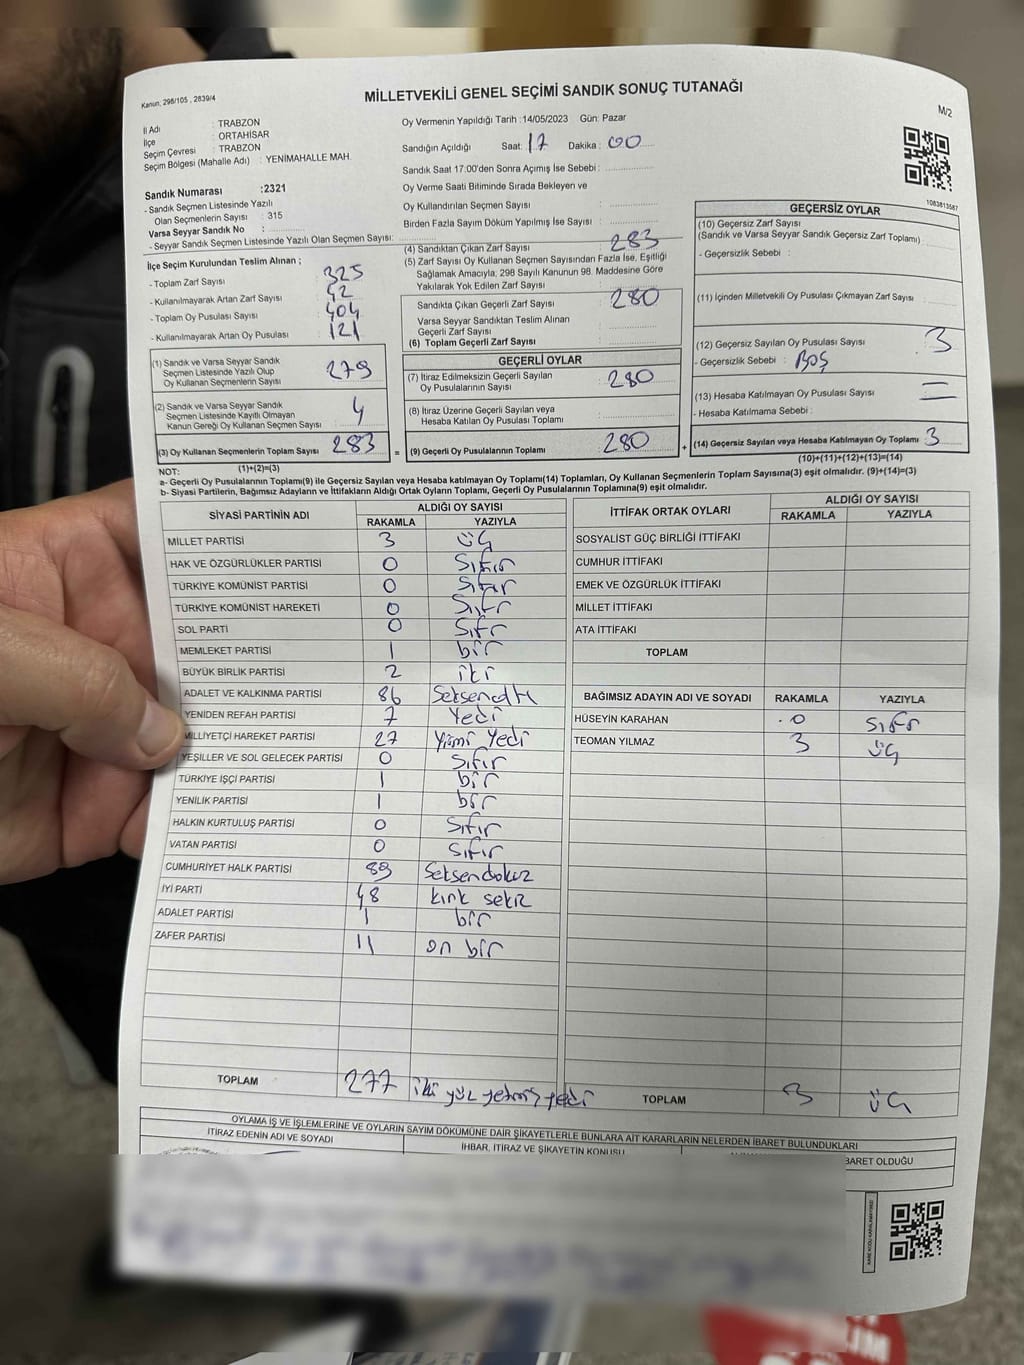 Kanun, 298/105 , 2839/4
MİLLETVEKİLİ GENEL SEÇİMİ SANDIK SONUÇ TUTANAĞI
M/2
İl Adı : TRABZON
İlçe : ORTAHİSAR
Seçim Çevresi : TRABZON
Seçim Bölgesi (Mahalle Adı) : YENİMAHALLE MAH.
Sandık Numarası :2321
- Sandık Seçmen Listesinde Yazılı
Olan Seçmenlerin Sayısı : 315
Varsa Seyyar Sandık No :
- Seyyar Sandık Seçmen Listesinde Yazılı Olan Seçmen Sayısı:
İlçe Seçim Kurulundan Teslim Alınan ;
- Toplam Zarf Sayısı 325
- Kullanılmayarak Artan Zarf Sayısı 42
- Toplam Oy Pusulası Sayısı 404
- Kullanılmayarak Artan Oy Pusulası 121
(1) Sandık ve Varsa Seyyar Sandık
Seçmen Listesinde Yazılı Olup
Oy Kullanan Seçmenlerin Sayısı 279
(2) Sandık ve Varsa Seyyar Sandık
Seçmen Listesinde Kayıtlı Olmayan
Kanun Gereği Oy Kullanan Seçmen Sayısı 4
(3) Oy Kullanan Seçmenlerin Toplam Sayısı 283
(1)+(2)=(3)
Oy Vermenin Yapıldığı Tarih :14/05/2023 Gün: Pazar
Sandığın Açıldığı Saat: 17 Dakika : 00
Sandık Saat 17:00'den Sonra Açımış İse Sebebi :
Oy Verme Saati Bitiminde Sırada Bekleyen ve
Oy Kullandırılan Seçmen Sayısı :
Birden Fazla Sayım Döküm Yapılmış İse Sayısı :
(4) Sandıktan Çıkan Zarf Sayısı : 283
(5) Zarf Sayısı Oy Kullanan Seçmen Sayısından Fazla İse, Eşitliği
Sağlamak Amacıyla; 298 Sayılı Kanunun 98. Maddesine Göre
Yakılarak Yok Edilen Zarf Sayısı :
Sandıkta Çıkan Geçerli Zarf Sayısı : 280
Varsa Seyyar Sandıktan Teslim Alınan
Geçerli Zarf Sayısı :
(6) Toplam Geçerli Zarf Sayısı :
GEÇERLİ OYLAR
(7) İtiraz Edilmeksizin Geçerli Sayılan
Oy Pusulalarının Sayısı : 280
(8) İtiraz Üzerine Geçerli Sayılan veya
Hesaba Katılan Oy Pusulası Toplamı :
= (9) Geçerli Oy Pusulalarının Toplamı : 280 +
1083813587
GEÇERSİZ OYLAR
(10) Geçersiz Zarf Sayısı
(Sandık ve Varsa Seyyar Sandık Geçersiz Zarf Toplamı)
- Geçersizlik Sebebi :
(11) İçinden Milletvekili Oy Pusulası Çıkmayan Zarf Sayısı :
(12) Geçersiz Sayılan Oy Pusulası Sayısı : 3
- Geçersizlik Sebebi : Boş
(13) Hesaba Katılmayan Oy Pusulası Sayısı :
- Hesaba Katılmama Sebebi :
(14) Geçersiz Sayılan veya Hesaba Katılmayan Oy Toplamı : 3
(10)+(11)+(12)+(13)=(14)
NOT:
a- Geçerli Oy Pusulalarının Toplamı(9) ile Geçersiz Sayılan veya Hesaba katılmayan Oy Toplamı(14) Toplamları, Oy Kullanan Seçmenlerin Toplam Sayısına(3) eşit olmalıdır. (9)+(14)=(3)
b- Siyasi Partilerin, Bağımsız Adayların ve İttifakların Aldığı Ortak Oyların Toplamı, Geçerli Oy Pusulalarının Toplamına(9) eşit olmalıdır.
SİYASİ PARTİNİN ADI ALDIĞI OY SAYISI
RAKAMLA YAZIYLA
MİLLET PARTİSİ 3 üç
HAK VE ÖZGÜRLÜKLER PARTİSİ 0 Sıfır
TÜRKİYE KOMÜNİST PARTİSİ 0 Sıfır
TÜRKİYE KOMÜNİST HAREKETİ 0 Sıfır
SOL PARTİ 0 Sıfır
MEMLEKET PARTİSİ 1 bir
BÜYÜK BİRLİK PARTİSİ 2 iki
ADALET VE KALKINMA PARTİSİ 86 Seksenaltı
YENİDEN REFAH PARTİSİ 7 Yedi
MİLLİYETÇİ HAREKET PARTİSİ 27 Yirmi Yedi
YEŞİLLER VE SOL GELECEK PARTİSİ 0 Sıfır
TÜRKİYE İŞÇİ PARTİSİ 1 bir
YENİLİK PARTİSİ 1 bir
HALKIN KURTULUŞ PARTİSİ 0 Sıfır
VATAN PARTİSİ 0 Sıfır
CUMHURİYET HALK PARTİSİ 89 Seksendokuz
İYİ PARTİ 48 kırk sekiz
ADALET PARTİSİ 1 bir
ZAFER PARTİSİ 11 on bir
TOPLAM 277 iki yüz yetmiş yedi
İTTİFAK ORTAK OYLARI ALDIĞI OY SAYISI
RAKAMLA YAZIYLA
SOSYALİST GÜÇ BİRLİĞİ İTTİFAKI
CUMHUR İTTİFAKI
EMEK VE ÖZGÜRLÜK İTTİFAKI
MİLLET İTTİFAKI
ATA İTTİFAKI
TOPLAM
BAĞIMSIZ ADAYIN ADI VE SOYADI RAKAMLA YAZIYLA
HÜSEYİN KARAHAN 0 sıfır
TEOMAN YILMAZ 3 üç
TOPLAM 3 üç
OYLAMA İŞ VE İŞLEMLERİNE VE OYLARIN SAYIM DÖKÜMÜNE DAİR ŞİKAYETLERLE BUNLARA AİT KARARLARIN NELERDEN İBARET BULUNDUKLARI
İTİRAZ EDENİN ADI VE SOYADI
İHBAR, İTİRAZ VE ŞİKAYETİN KONUSU
BARET OLDUĞU